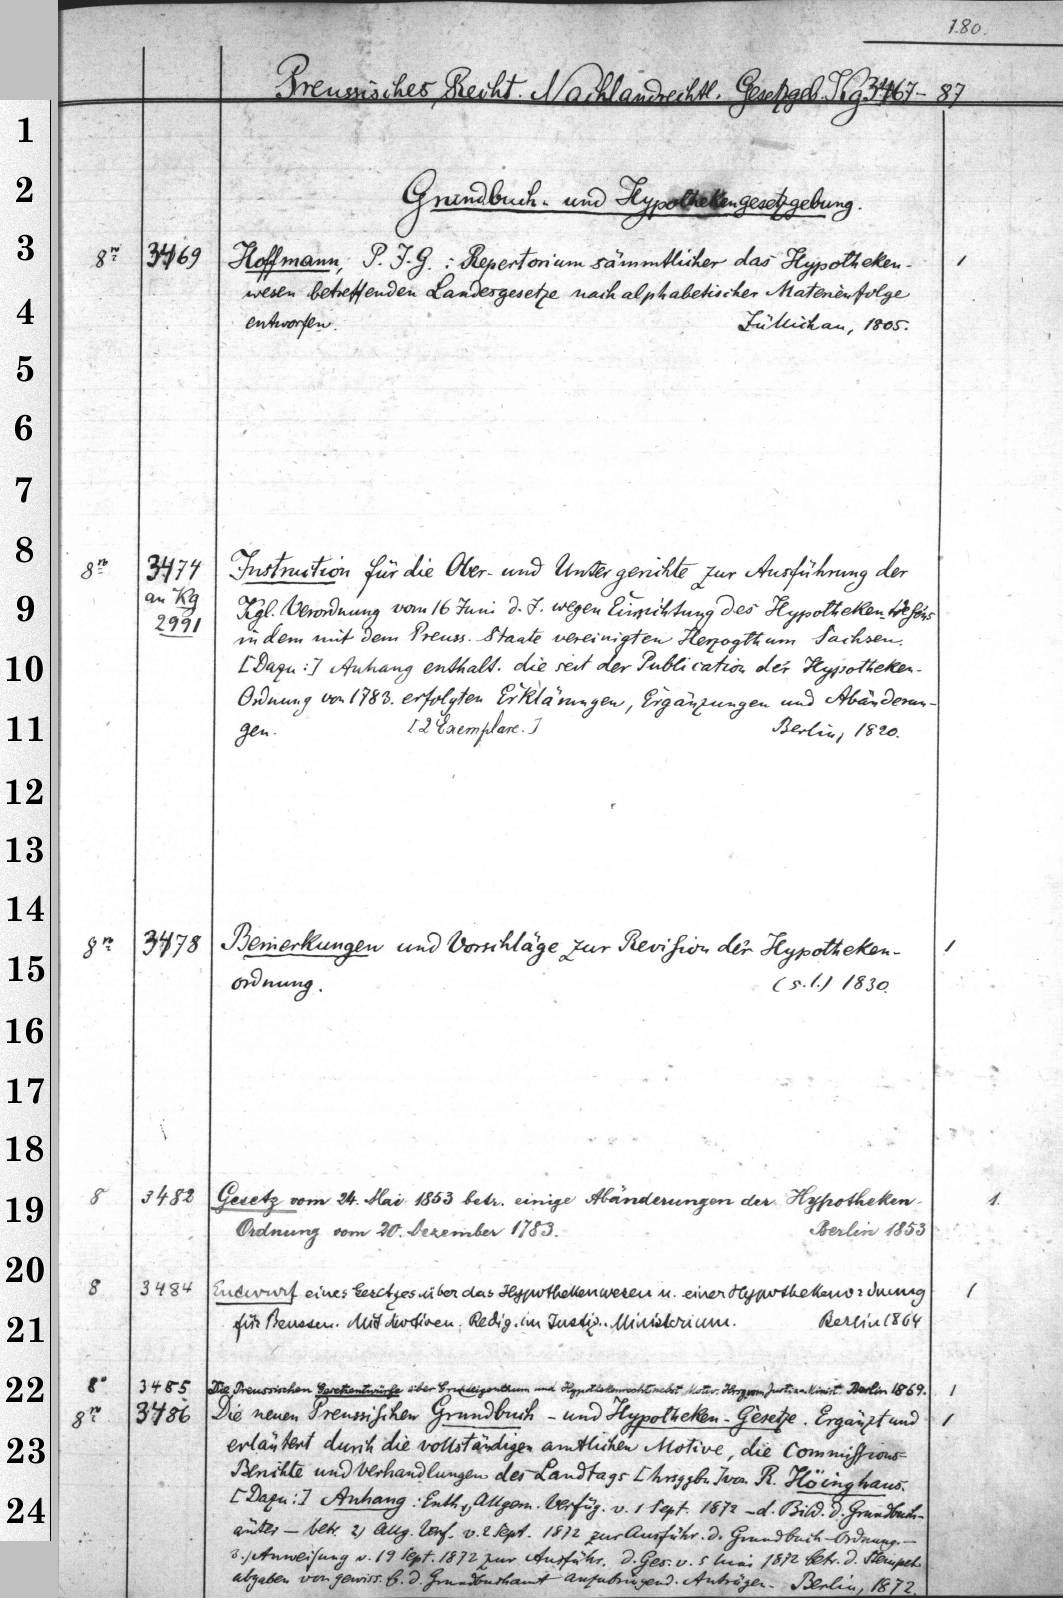 180.
Preussisches Recht. Nachlandrechtl. Gesetzgeb. Kg 3467-87
1
2 Grundbuch- und Hypothekengesetzgebung.
3 8º 3469 Hoffmann, P. J. G.: Repertorium sämmtlicher das Hypotheken- 1
wesen betreffenden Landesgesetze nach alphabetischer Materienfolge
4 entworfen. Züllichau, 1805.
5
6
7
8 8º 3474 Instruction für die Ober- und Untergerichte zur Ausführung der
an Kg
9 2991 Kgl. Verordnung vom 16 Juni d. J. wegen Einrichtung des Hypothekenwesens
in dem mit dem Preuss. Staate vereinigten Herzogthum Sachsen.
10 [Dazu:] Anhang enthalt. die seit der Publication der Hypotheken-
Ordnung von 1783. erfolgten Erklärungen, Ergänzungen und Abänderun-
11 gen. [2 Exemplare.] Berlin, 1820.
12
13
14
8º 3478 Bemerkungen und Vorschläge zur Revision der Hypotheken- 1
15 ordnung. (s. l.) 1830.
16
17
18
19 8 3482 Gesetz vom 24. Mai 1853 betr. einige Abänderungen der Hypotheken- 1.
Ordnung vom 20. Dezember 1783. Berlin 1853
20 8 3484 Entwurf eines Gesetzes über das Hypothekenwesen u. einer Hypothekenordnung 1
21 für Preussen. Mit Motiven. Redig. im Justiz-Ministerium. Berlin 1864
22 8º 3485 Die Preussischen Gesetzentwürfe über Grundeigenthum und Hypothekenrecht nebst Motiv. Hrsg. vom Justiz-Minist. Berlin 1869. 1
8º 3486 Die neuen Preussischen Grundbuch- und Hypotheken-Gesetze. Ergänzt und 1
23 erläutert durch die vollständigen amtlichen Motive, die Commissions-
Berichte und Verhandlungen des Landtags [hrsggbn.] von R. Höinghaus.
24 [Dazu:] Anhang: Enth. 1, Allgem. Verfüg. v. 1 Sept. 1872 - d. Bild. d. Grundbuch-
ämter - betr. 2) Allg. Verf. v. 2 Sept. 1872 zur Ausführ. d. Grundbuch-Ordnung. -
3.) Anweisung v. 19 Sept. 1872 zur Ausführ. d. Ges. v. 5 Mai 1872 betr. d. Stempel-
abgaben von gewiss. b. d. Grundbuchamt anzubringend. Anträgen. Berlin, 1872.